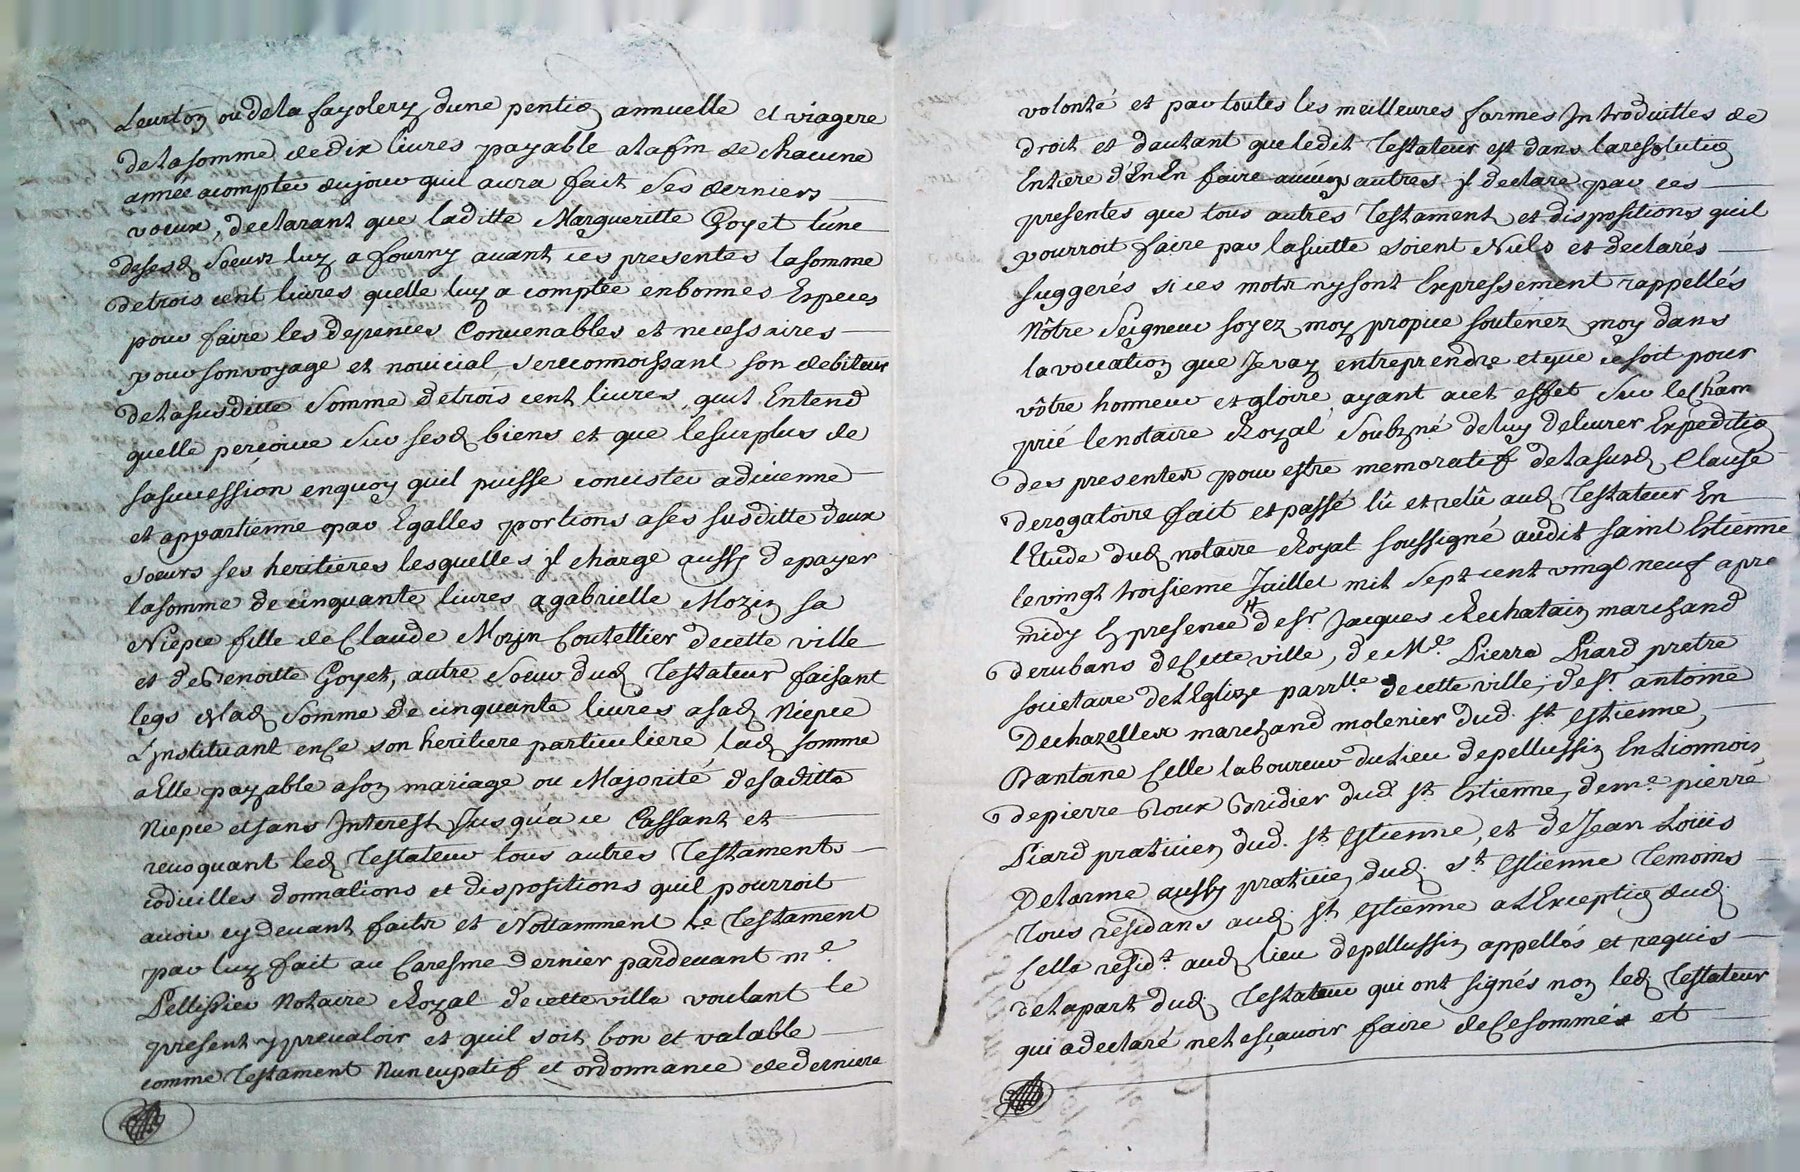 Leurton ou de la fayolery d'une pention annuelle et viagere
de la somme de dix livres payable a la fin de chacune
année a compter du jour quil aura fait ses derniers
voeux, declarant que laditte Margueritte Goyet lune
de sesd. soeurs luy a fourny avant ces presentes la somme
de trois cent livres quelle luy a comptée en bonnes Especes
pour faire les depences Convenables et necessaires
pour son voyage et noviciat se reconnoissant son debiteur
de la susditte somme de trois cent livres, quil Entend
quelle perçoive sur sesd. biens et que le surplus de
sa succession en quoy quil puisse concister advienne
et appartienne par Egalles portions a ses susditte deux
soeurs ses heritieres lesquelles jl charge aussy de payer
la somme de cinquante livres a gabrielle Mozin sa
Niepce fille de Claude Mozin Coutellier de cette ville
et de Benoitte Goyet, autre soeur dud. Testateur faisant
legs de lad. somme de cinquante livres a sad. Niepce
L'jnstituant en ce son heritiere particuliere lad. somme
a Elle payable a son mariage ou Majorité de saditte
Niepce et sans Interest Jusqu'a ce Cassant et
revoquant led. Testateur tous autres Testaments
codicilles donnations et dispositions quil pourroit
avoir cy devant faits et Nottamment Le Testament
par luy fait au Caresme dernier pardevant me.
Pellissier Notaire Royal de cette ville voulant le
present y prevaloir et quil soit bon et valable
comme Testament Nuncupatif et ordonnance de derniere
volonté et par toutes les meilleures formes Introduittes de
droit et dautant que ledit Testateur est dans la resolution
Entiere d'En En faire aucuns autres jl declare par ces
presentes que tous autres Testament et dispositions quil
pourroit faire par la suitte soient Nuls et declarés
suggerés si ces mots ny sont Expressement rappellés
Nôtre Seigneur soyez moy propice soutenez moy dans
la vocation que Je vay entreprendre et que ce soit pour
vôtre honneur et gloire, ayant a cet effet sur le Cham
prié le notaire Royal Soubzné de luy delivrer Expedition
des presentes pour estre memoratif de la susd. Clause
derogatoire fait et passé lû et relû aud. Testateur En
l'Etude dud. notaire Royal soussigné audit saint Estienne
le vingt troisieme Juillet mil sept cent vingt neuf apre
midy En presence de sr. Jacques Rechatain marchand
de rubans de Cette ville, de Me. Pierre Piard pretre
societaire de L'Eglize parrlle. de cette ville, de sr. antoine
Dechazelles marchand molenier dud. st. Estienne,
D'antoine Celle laboureur du lieu de pellussin En Lionnois
de pierre Roux Bridier dud. st. Estienne, de me. pierre
Piard praticien dud. st. Estienne, et de Jean Loüis
Delarme aussy praticien dud. st. Estienne Temoins
Tous residans aud. st. Estienne a L'Exception dud.
Celle residt. aud. lieu de pellussin appellés et requis
de la part dud. Testateur qui ont signés non led. Testateur
qui a declaré ne le sçavoir faire de Ce sommés et